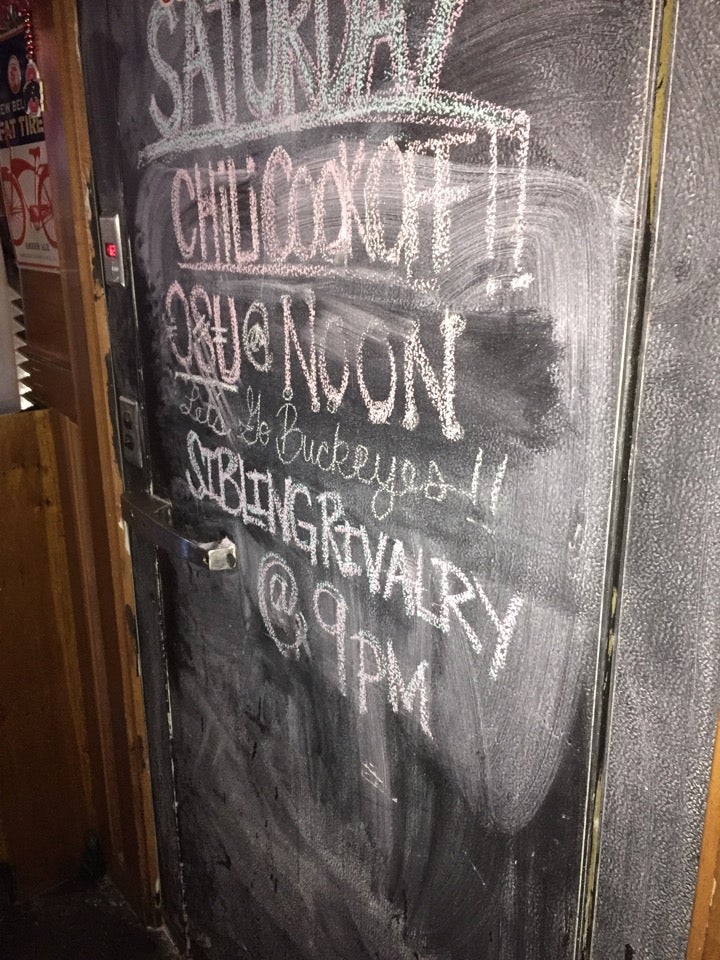 SATURDAY
CHILI COOKOFF!!
O&U @ NOON
Lets Go Buckeyes!!
SIBLING RIVALRY
@ 9PM
EW BEL
FAT TIRE
AMBER ALE